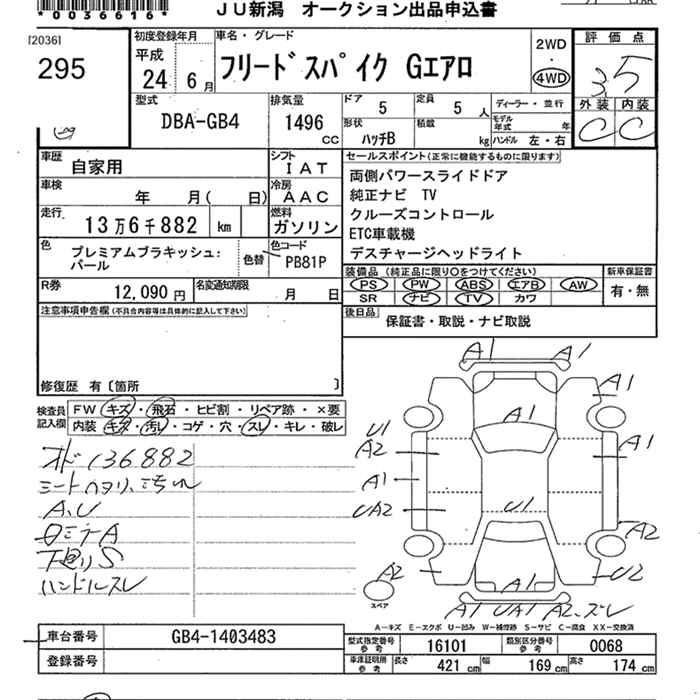 *0036616*
JU新潟 オークション出品申込書
[2036]
295
初度登録年月
平成
24 6月
車名・グレード
フリードスパイク Gエアロ
2WD
・
4WD
評価点
3.5
外装 内装
C C
型式
DBA-GB4
排気量
1496 cc
ドア 5
定員 5 人
形状 ハッチB
積載 kg
ディーラー・並行
モデル年式 年
ハンドル 左・右
車歴 自家用
シフト IAT
車検 年 月( 日)
冷房 AAC
走行 13万6千882 km
燃料 ガソリン
色 プレミアムブラキッシュ:
パール
色替
色コード PB81P
R券 12,090円
名変通知期限 月 日
セールスポイント(正常に機能するものに限ります)
両側パワースライドドア
純正ナビ TV
クルーズコントロール
ETC車載機
デスチャージヘッドライト
装備品(純正品に限り○をつけてください)
PS PW ABS エアB AW
SR ナビ TV カワ
新車保証書
有・無
後日品 保証書・取説・ナビ取説
注意事項申告欄(不具合内容等は具体的に記入して下さい)
修復歴 有〔箇所 〕
検査員記入欄
FW キズ・飛石・ヒビ割・リペア跡・×要
内装 キズ・汚れ・コゲ・穴・スレ・キレ・破レ
オド 136882
シートヘタリ、汚れ
A、U
下廻りS
ハンドルスレ
A1 A1
A1
A1
U1
A2
A1
A1
UA2
U1
A2
A2
U2
A1
A1 UA1 A2 ズレ
スペア
A-キズ E-エクボ U-凹み W-補修跡 S-サビ C-腐食 XX-交換済
車台番号 GB4-1403483
登録番号
型式指定番号 参考 16101
類別区分番号 参考 0068
車庫証明用 参考 長さ 421 cm 幅 169 cm 高さ 174 cm